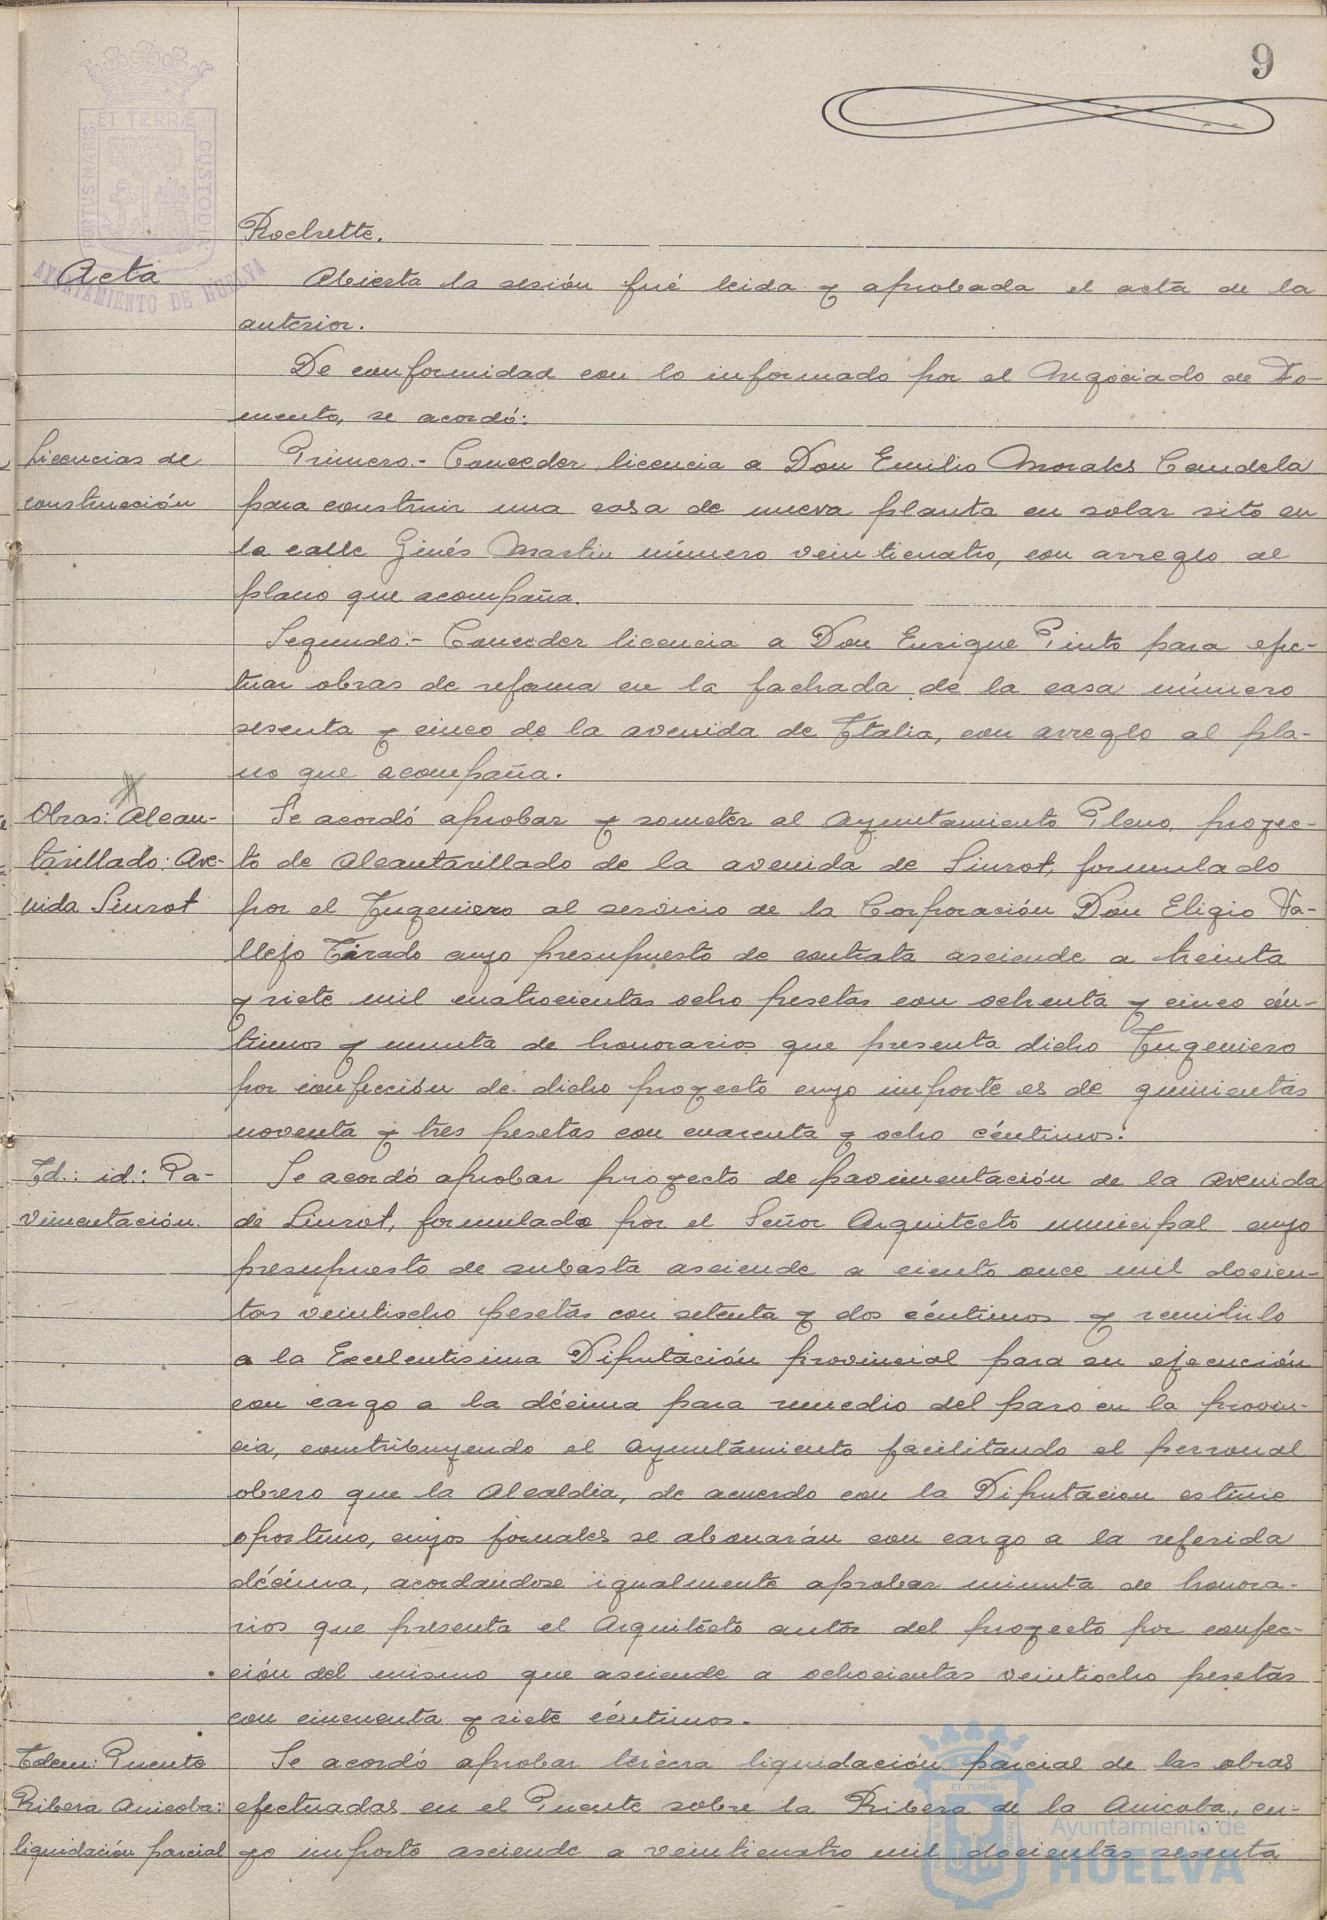 9
PORTUS MARIS ET TERRÆ CUSTODIA
AYUNTAMIENTO DE HUELVA
Rochette.
Acta
Abierta la sesión fué leida y aprobada el acta de la
anterior.
De conformidad con lo informado por el Negociado de Fo-
mento, se acordó:
Licencias de
construcción
Primero.- Conceder licencia a Don Emilio Morales Candela
para construir una casa de nueva planta en solar sito en
la calle Ginés Martin número veinticuatro, con arreglo al
plano que acompaña.
Segundo.- Conceder licencia a Don Enrique Pinto para efec-
tuar obras de reforma en la fachada de la casa número
sesenta y cinco de la avenida de Italia, con arreglo al pla-
no que acompaña.
Obras: Alcan-
tarillado: Ave-
nida Siurot
Se acordó aprobar y someter al Ayuntamiento Pleno, proyec-
to de Alcantarillado de la avenida de Siurot, formulado
por el Ingeniero al servicio de la Corporación Don Eligio Va-
llejo Tirado cuyo presupuesto de contrata asciende a treinta
y siete mil cuatrocientas ocho pesetas con ochenta y cinco cén-
timos y minuta de honorarios que presenta dicho Ingeniero
por confección de dicho proyecto cuyo importe es de quinientas
noventa y tres pesetas con cuarenta y ocho céntimos.
Id.: id.: Pa-
vimentación.
Se acordó aprobar proyecto de pavimentación de la Avenida
de Siurot, formulado por el Señor Arquitecto municipal cuyo
presupuesto de subasta asciende a ciento once mil doscien-
tas veintiocho pesetas con setenta y dos céntimos y remitirlo
a la Excelentisima Diputación provincial para su ejecución
con cargo a la décima para remedio del paro en la provin-
cia, contribuyendo el Ayuntamiento facilitando el personal
obrero que la Alcaldia, de acuerdo con la Diputacion estime
oportuno, cuyos jornales se abonarán con cargo a la referida
décima, acordandose igualmente aprobar minuta de honora-
rios que presenta el Arquitecto autor del proyecto por confec-
ción del mismo que asciende a ochocientas veintiocho pesetas
con cincuenta y siete céntimos.
Idem: Puente
Ribera Anicoba:
liquidación parcial
Se acordó aprobar tercera liquidación parcial de las obras
efectuadas en el Puente sobre la Ribera de la Anicoba, cu-
yo importe asciende a veinticuatro mil doscientas sesenta
Ayuntamiento de
HUELVA